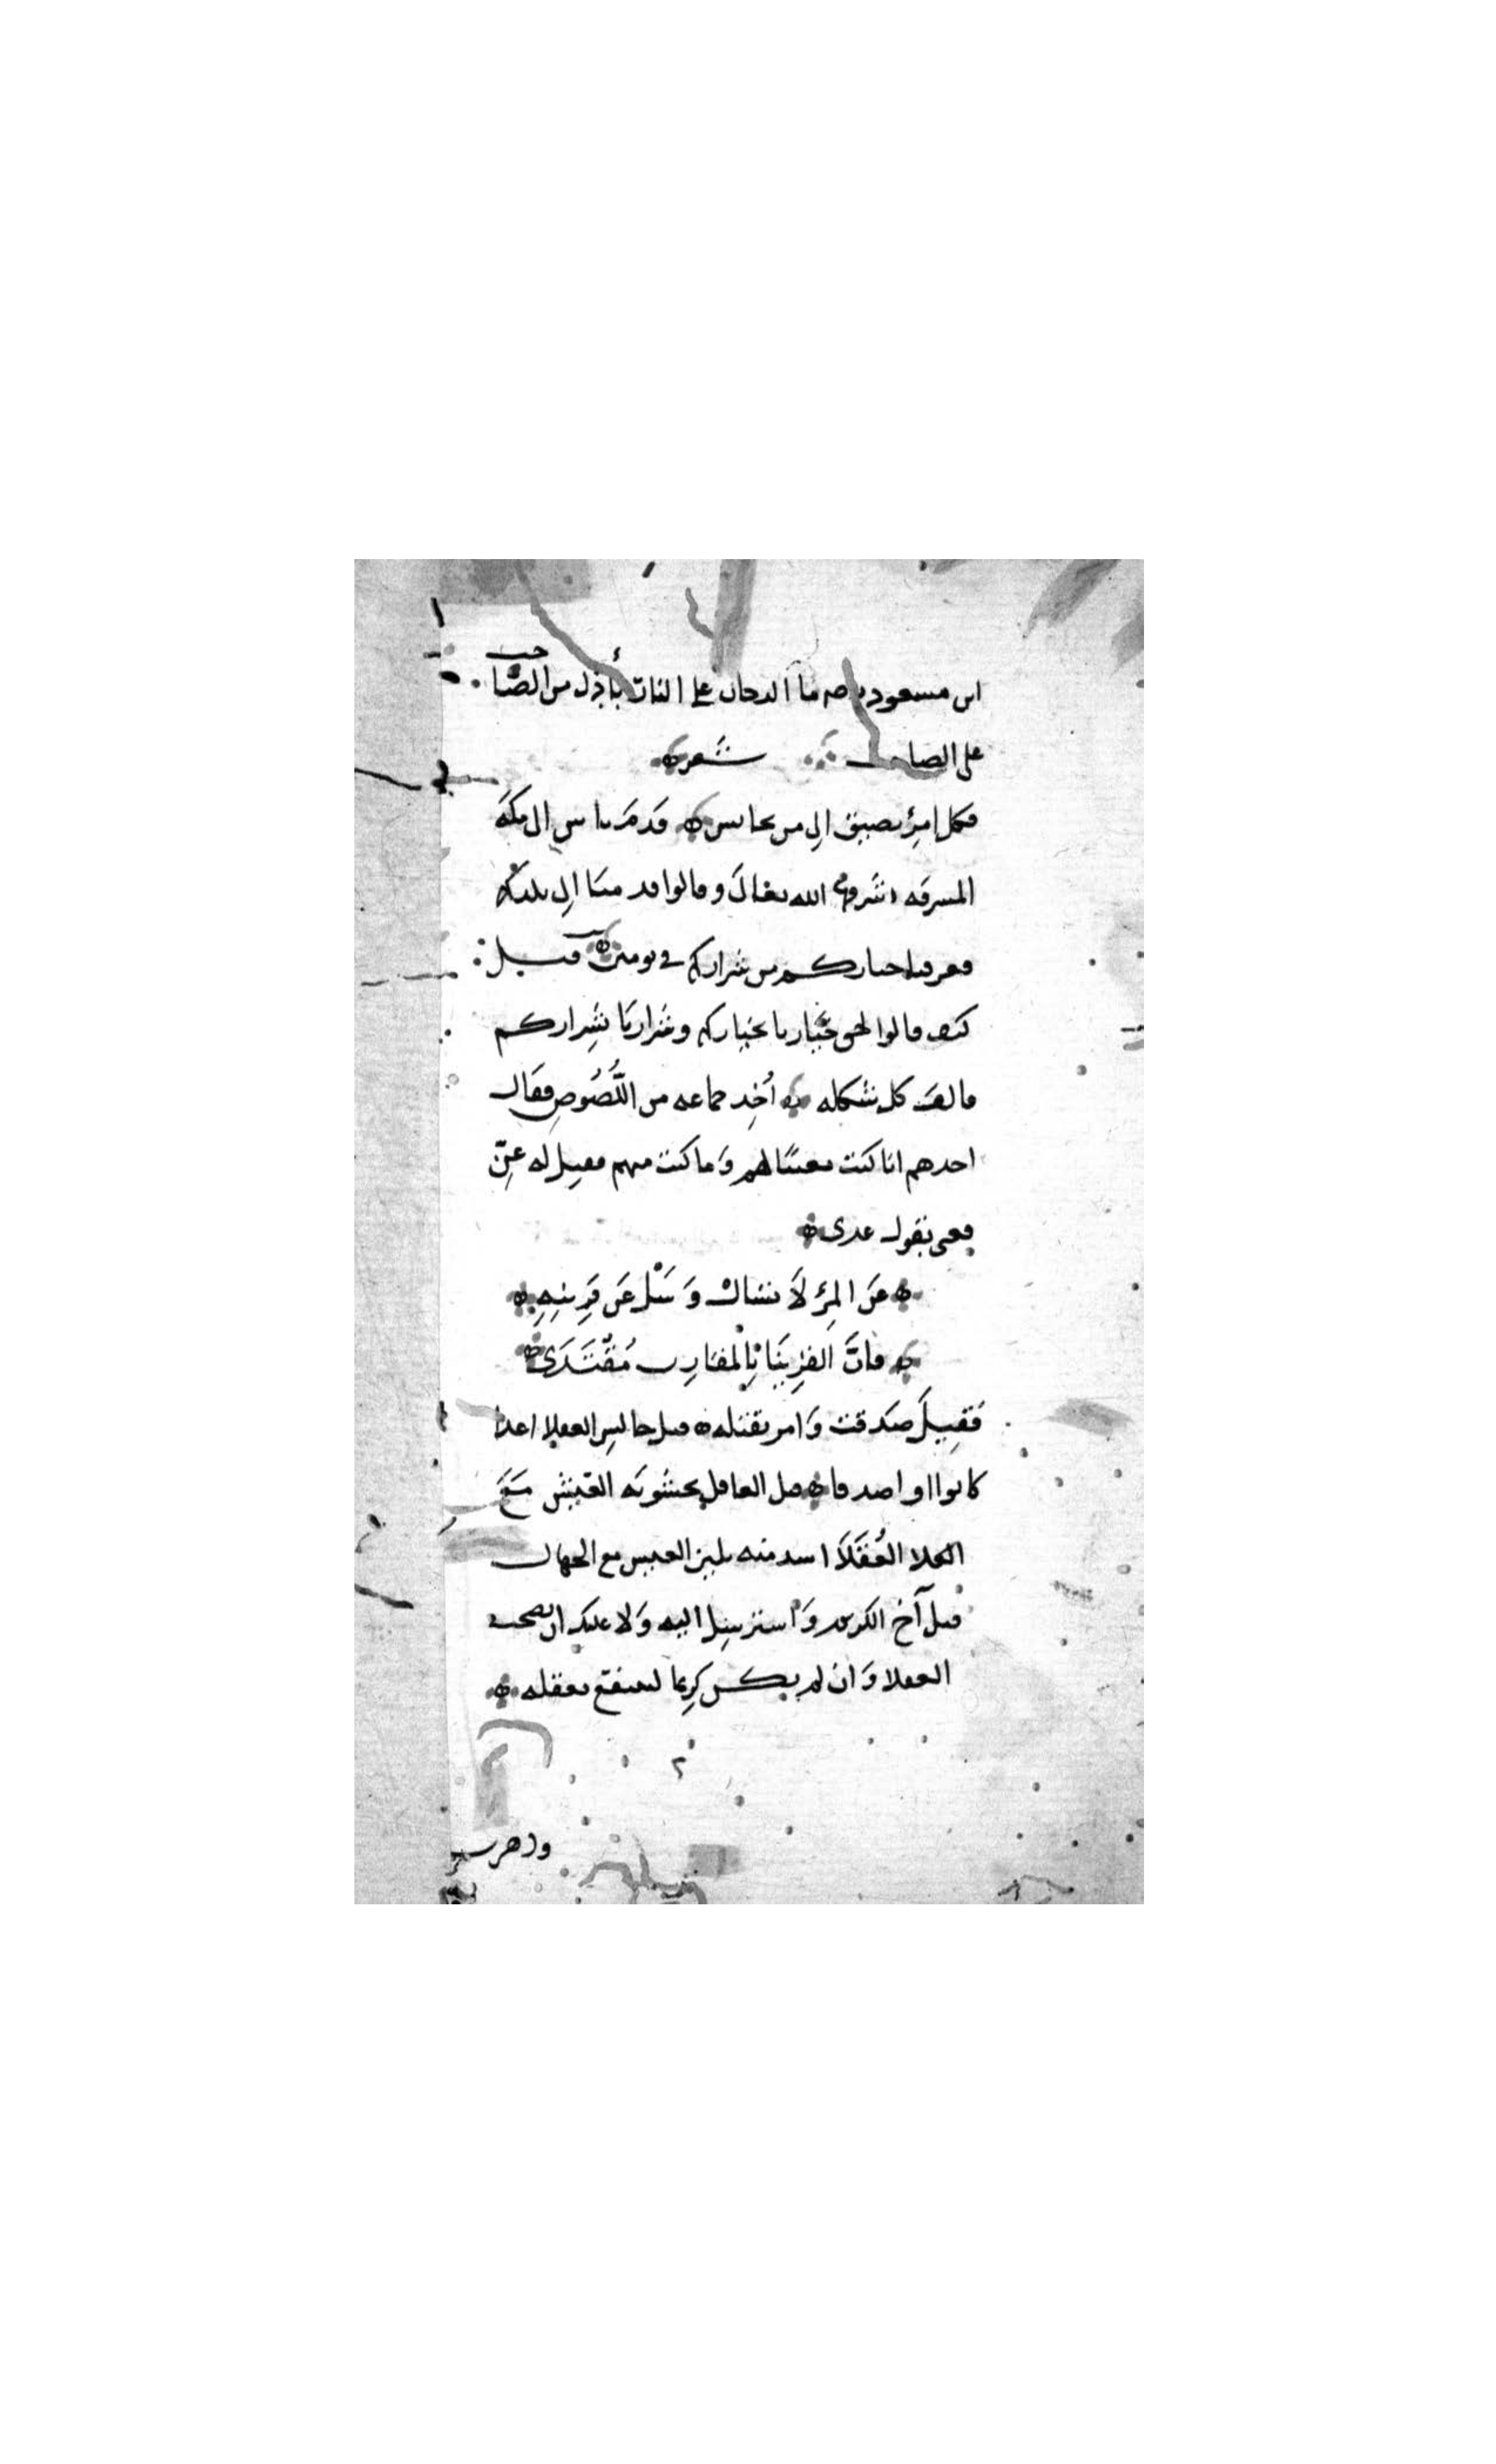 ابن مسعود رضه ما الدخان على النار بأدل من الصاحب
على الصاحب شعر
فكل امرئ يصبو الى من يجانس قدم ناس الى مكة
المشرفة شرفها الله تعالى وقالوا قدمنا الى بلدكم
فعرفنا خياركم من شراركم في يومين قيل
كيف قالوا لحق خيارنا بخياركم وشرارنا بشراركم
فالف كل شكله أُخِد جماعه من اللُّصُوصِ فقال
احدهم انا كنت مغنيا لهم وَما كنت منهم فقيل له غنّ
فغنى بقول عدى
عَن المرْءِ لَا تسال وَسَلْ عَن قَرِينِهِ
فانَّ القَرِينَا بِالْمقَارِب مُقْتَدَى
فَقِيلَ صَدقت وَامر بقتله قيل جالس العقلا اعدا
كانوا او اصدقا قيل العاقل بخشونة العيش مَعَ
العُقَلَا اسد منه بلين العيش مع الجهال
قيل آخ الكريم وَاسترسل اليه وَلا عليك ان تصحب
العقلا وَان لم يكن كريما لتنتفع بعقله
واهرب